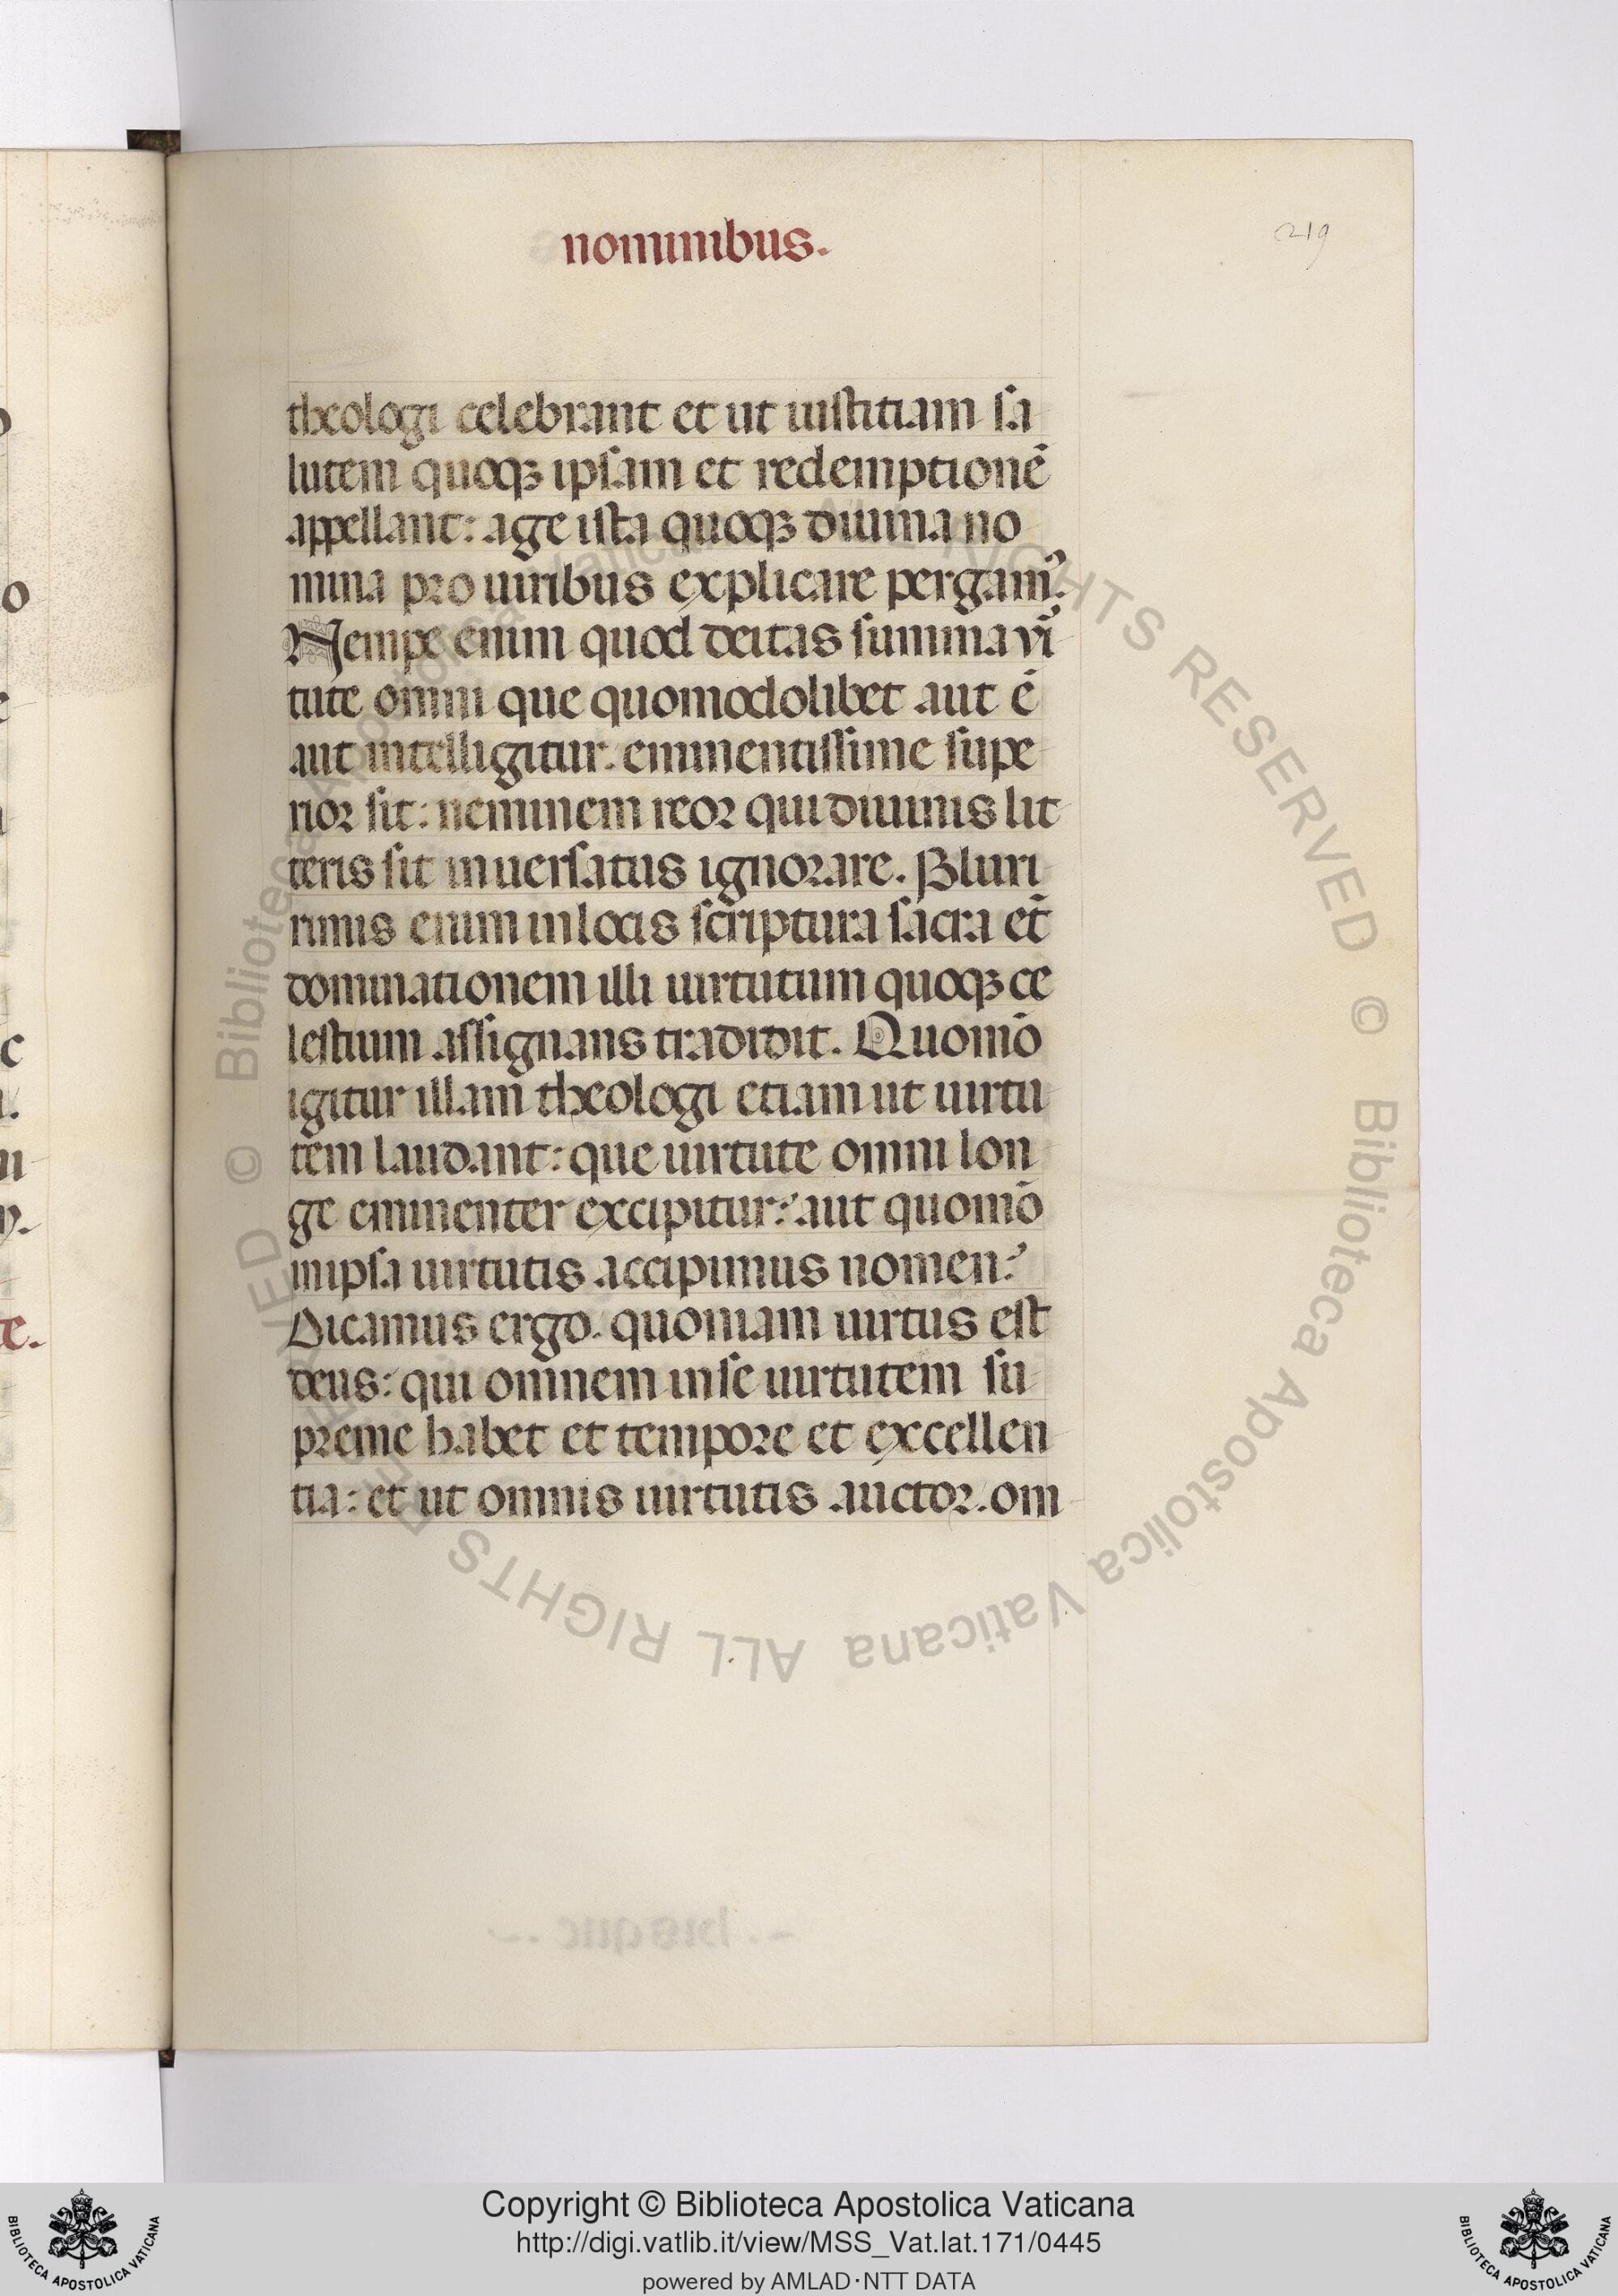 nominibus.
219
theologi celebrant et ut iustitiam sa
lutem quoqꝫ ipsam et redemptionē
appellant: age ista quoqꝫ diuina no
mina pro uiribus explicare pergam᾽.
Nempe enim quod deitas summa vi᾽
tute omni que quomodolibet aut ē
aut intelligitur: eminentissime supe
rior sit: neminem reor qui diuinis lit
teris sit in uersatus ignorare. Pluri
rimis enim in locis scriptura sacra et̄
dominationem illi uirtutum quoqꝫ ce
lestium assignans tradidit. Quomō
igitur illam theologi etiam ut uirtu
tem laudant: que uirtute omni lon
ge eminenter excipitur: aut quomō
in ipsa uirtutis accipimus nomen?
Dicamus ergo. quoniam uirtus est
deus: qui omnem in se uirtutem su
preme habet et tempore et excellen
tia: et ut omnis uirtutis auctor. om
© Biblioteca Apostolica Vaticana ALL RIGHTS RESERVED © Biblioteca Apostolica Vaticana ALL RIGHTS RESERVED
Copyright © Biblioteca Apostolica Vaticana
http://digi.vatlib.it/view/MSS_Vat.lat.171/0445
powered by AMLAD·NTT DATA
BIBLIOTECA APOSTOLICA VATICANA
BIBLIOTECA APOSTOLICA VATICANA